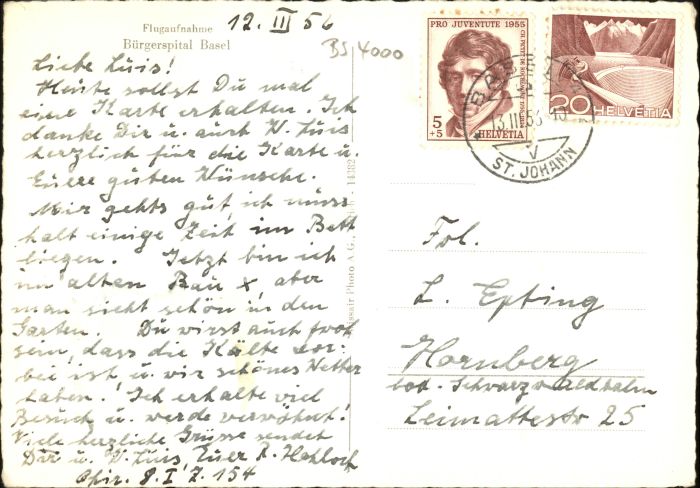 12. III 56
Flugaufnahme
Bürgerspital Basel
BS 4000
Liebe Luis!
Heute sollst Du mal
eine Karte erhalten. Ich
danke Dir u. auch W. Luis
herzlich für die Karte u.
Euere guten Wünsche.
Mir gehts gut, ich muss
halt einige Zeit im Bett
liegen. Jetzt bin ich
im alten Bau x, aber
man sieht schön in den
Garten. Du wirst auch froh
sein, dass die Kälte vor-
bei ist u. wir schönes Wetter
haben! Ich erhalte viel
Besuch u. werde verwöhnt!
Viele herzliche Grüsse sendet
Dir u. W. Luis Euer
Chir. 8. I Z. 154
Photo A.G., - 14382
PRO JUVENTUTE 1955
5
+5
HELVETIA
20 HELVETIA
BASEL
13.III.56
V
ST. JOHANN
L. Epting
Hornberg
Schwarzwaldbahn
Leimattestr 25